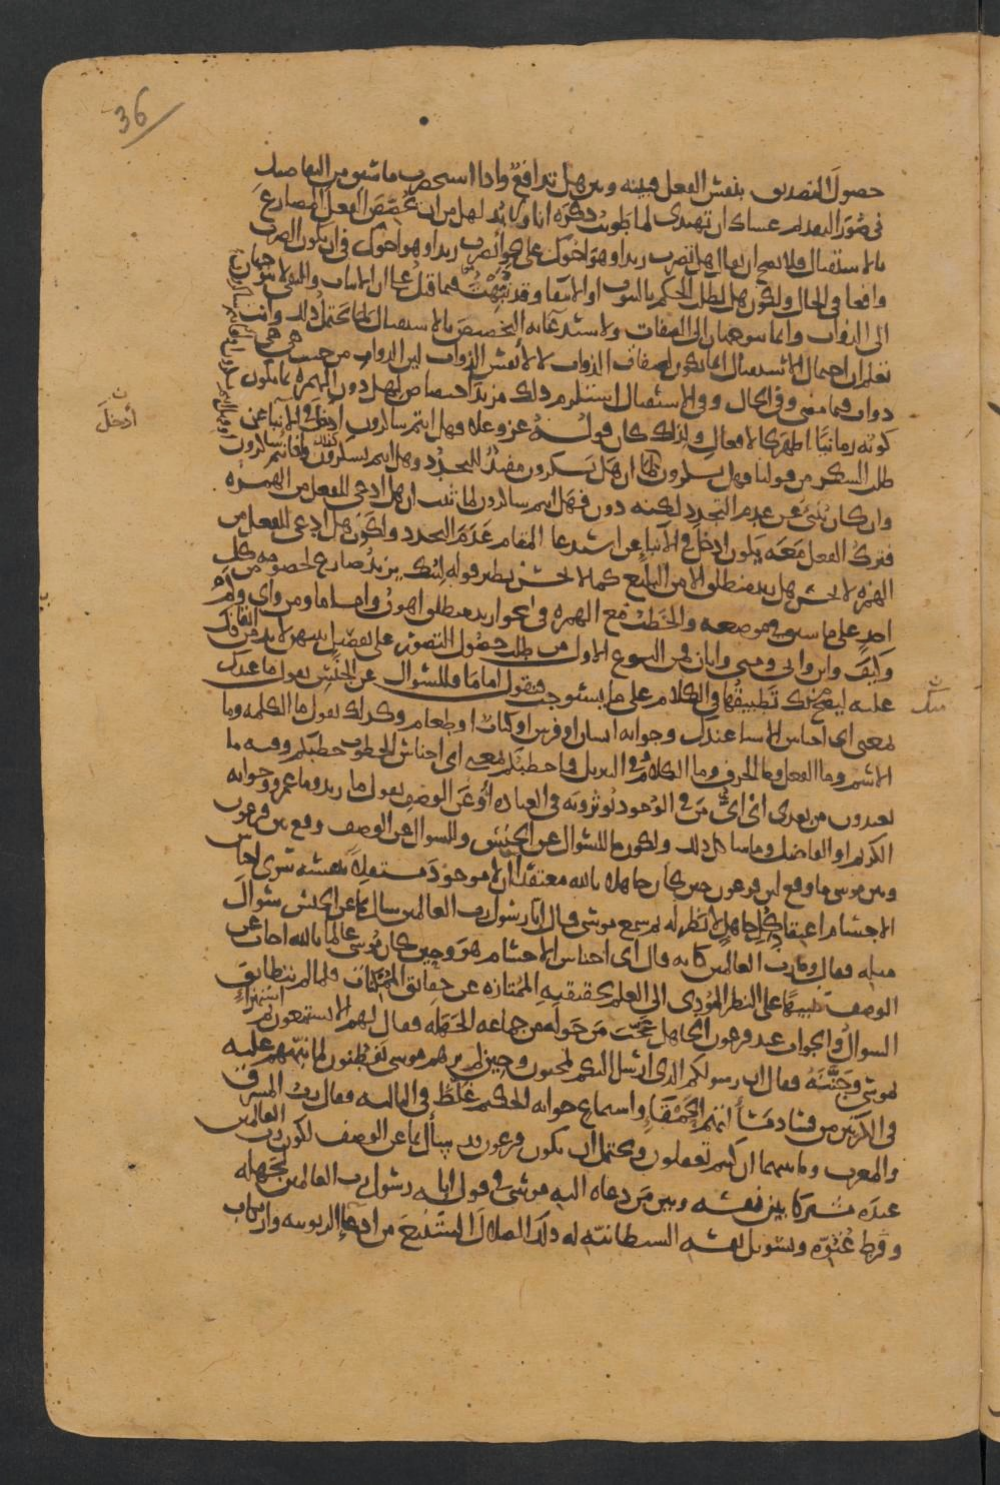 36
حصول التصديق بنفس الفعل فبينه وبين هل تدافع واذا استحضرت ما سبق من التفاصيل
في صور التقديم عساك ان تهتدي لما طويت ذكره انا ولا بد لهل من ان تخصص الفعل المضارع
بالاستقبال فلا يصح ان يقال هل تضرب زيدا وهو اخوك على نحو أتضرب زيدا وهو اخوك في ان يكون الضرب
واقعا في الحال ولكون هل لطلب الحكم بالثبوت او الانتفا وقد نبهت فيما قبل على ان الاثبات والنفي لا يتوجهان
الى الذوات وانما يتوجهان الى الصفات ولاستدعائه التخصيص بالاستقبال لما يحتمل ذلك وانت
تعلم ان احتمال الاستقبال انما يكون لصفات الذوات لا لأنفس الذوات لان الذوات من حيث هي هي
ذوات فيما مضى وفي الحال وفي الاستقبال استلزم ذلك مزيد اختصاص لهل دون الهمزة بما يكون
كونه زمانيا اظهر كالافعال ولذلك كان قوله عز وعلا فهل انتم شاكرون ادخل في الانباء عن
طلب الشكر من قولنا فهل تشكرون
وان كان ينبئ عن عدم التجدد لكنه دون فهل انتم شاكرون لما ثبت ان هل ادعى للفعل من الهمزة
فترك الفعل معه يكون ادخل في الانباء عن استدعا المقام عدم التجدد ولكون هل ادعى للفعل من
الهمزة لا يحسن هل زيد منطلق الا من البليغ كما لا يحسن نظير قوله ليبك يزيد ضارع لخصومه من كل
احد على ما سبق في موضعه والخطب مع الهمزة في نحو ازيد منطلق اهون واما ما ومن واي وكم
وكيف واين وانى ومتى وايان فمن النوع الاول من طلب حصول التصور على تفصيل بينهن لا بد من ايقافك
عليه ليصح منك تطبيقها في الكلام على ما يستوجب فنقول اما ما فللسؤال عن الجنس تقول ما عندك
بمعنى اي اجناس الاشيا عندك وجوابه انسان او فرس او كتاب او طعام وكذلك تقول ما الكلمه وما
الاسم وما الفعل وما الحرف وما الكلام وفي التنزيل فما خطبكم بمعنى اي اجناس الخطوب خطبكم وفيه ما
تعبدون من بعدي اي اي من في الوجود تؤثرونه في العباده او عن الوصف تقول ما زيد وما عمرو وجوابه
الكريم او الفاضل وما شاكل ذلك ولكون ما للسؤال عن الجنس وللسؤال عن الوصف وقع بين فرعون
وبين موسى ما وقع لان فرعون حين كان جاهلا بالله معتقدا ان لا موجود مستقلا بنفسه سوى اجناس
الاجسام اعتقاد كل جاهل لا نظر له ثم سمع موسى قال انا رسول رب العالمين سال بما عن الجنس سؤال
مثله فقال وما رب العالمين كانه قال اي اجناس الاجسام هو وحين كان موسى عالما بالله اجاب عن
الوصف تنبيها على النظر المؤدي الى العلم بحقيقته الممتازه عن حقائق الممكنات فلما لم يتطابق
السؤال والجواب عند فرعون الجاهل عجب من حوله من جماعه الجهله فقال لهم الا تستمعون ثم استهزأ
بموسى وجننه فقال ان رسولكم الذي ارسل اليكم لمجنون وحين لم يرهم موسى يفطنون لما نبههم عليه
في الكرتين من فساد مسألتهم الحمقاء واستماع جوابه الحكيم غلظ في الثالثه فقال رب المشرق
والمغرب وما بينهما ان كنتم تعقلون ويحتمل ان يكون فرعون قد سأل بما عن الوصف لكون رب العالمين
عنده مشتركا بين نفسه وبين من دعاه اليه موسى في قوله انا رسول رب العالمين لجهله
وفرط عتوه وتسويل نفسه الشيطانيه له ذلك الضلال الشنيع من ادعاء الربوبيه وارتكاب
ادخل
منك